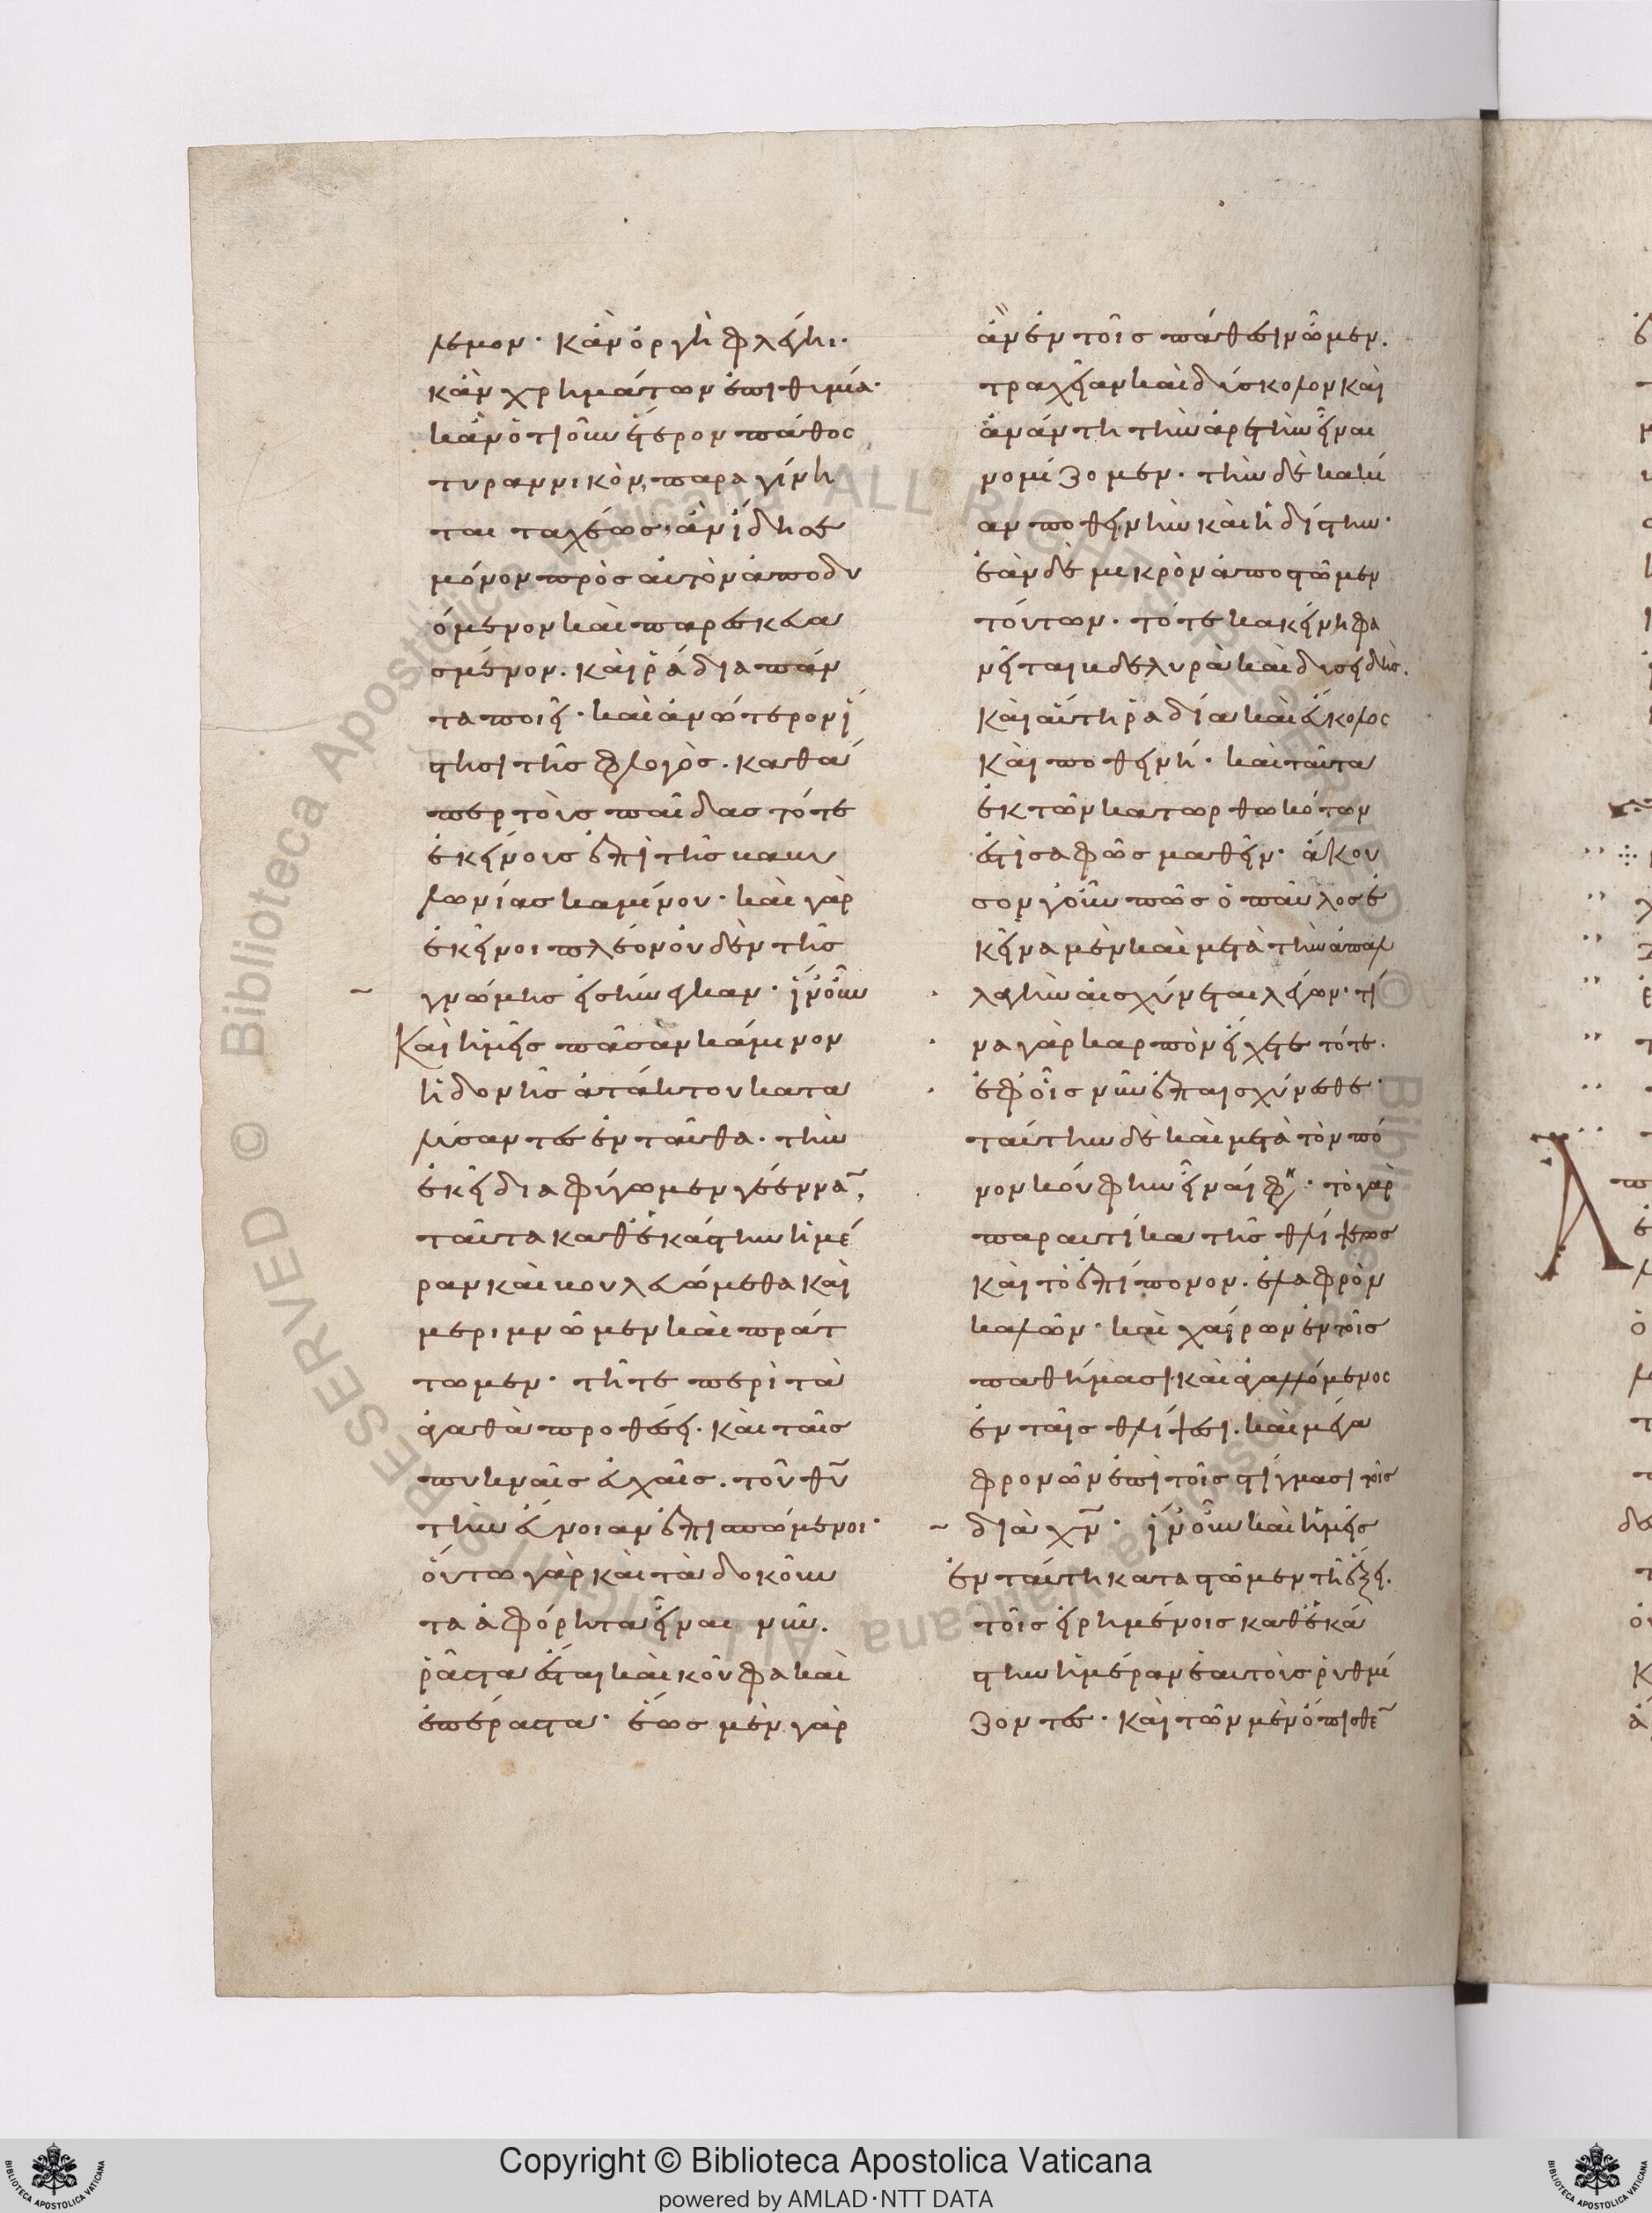 λεμον· κἂν ὀργὴ φλέγηι·
κἂν χρημάτων ἐπιθυμία·
κἂν ὁτιοῦν ἕτερον πάθος
τυραννικὸν, παραγίνη
ται ταχέως, ἂν ἴδη σε
μόνον πρὸς αὐτὸν ἀποδυ
όμενον καὶ παρεσκευα
σμένον. καὶ ῥάδια πάν
τα ποιεῖ· καὶ ἀνώτερον ἵ
στησι τῆς φλογὸς. καθά
περ τοὺς παῖδας τότε
ἐκείνους ἐπὶ τῆς βαβυ
λωνίας καμίνου· καὶ γὰρ
ἐκεῖνοι πλέον οὐδὲν τῆς
γνώμης εἰσήνεγκαν· ἵν' οὖν
Καὶ ἡμεῖς πᾶσαν κάμινον
ἡδονῆς ἀτάκτου κατα
λύσαντες ἐνταῦθα. τὴν
ἐκεῖ διαφύγωμεν γέενναν,
ταῦτα καθ' ἑκάστην ἡμέ
ραν καὶ βουλευώμεθα καὶ
μεριμνῶμεν καὶ πράτ
τωμεν· τῆ τε περὶ τὰ
ἀγαθὰ προθέσει. καὶ ταῖς
πυκναῖς εὐχαῖς. τοῦ θυ
τὴν εὔνοιαν ἐπισπώμενοι·
οὕτω γὰρ καὶ τὰ δοκοῦν
τα ἀφόρητα εἶναι νῦν.
ῥᾶστα ἔσται καὶ κοῦφα καὶ
ἐπέραστα· ἕως μὲν γὰρ
ἂν ἐν τοῖς πάθεσιν ὦμεν.
τραχεῖαν καὶ δύσκολον καὶ
ἀνάντη τὴν ἀρετὴν εἶναι
νομίζομεν· τὴν δὲ κακί
αν ποθεινὴν καὶ ἡδίστην·
ἐὰν δὲ μικρὸν ἀποστῶμεν
τούτων· τότε κακείνη φα
νεῖται βδελυρὰ καὶ δυσειδὴς.
καὶ αὕτη ῥαδία καὶ εὔκολος
καὶ ποθεινή· καὶ ταῦτα
ἐκ τῶν κατωρθωκότων
ἔστι σαφῶς μαθεῖν· ἄκου
σον γοῦν πῶς ὁ παῦλος ἐ
κεῖνα μὲν καὶ μετὰ τὴν ἀπαλ
λαγὴν αἰσχύνεται λέγων· τί
να γὰρ καρπὸν εἴχετε τότε.
ἐφ' οἷς νῦν ἐπαισχύνεσθε·
ταύτην δὲ καὶ μετὰ τὸν πό
νον κούφην εἶναί φη· τὸ γὰρ
παραυτίκα τῆς θλίψεως
καὶ τὸ ἐπίπονον. ἐλαφρὸν
καλῶν· καὶ χαίρων ἐν τοῖς
παθήμασι. καὶ ἀγαλλόμενος
ἐν ταῖς θλίψεσι. καὶ μέγα
φρονῶν ἐπὶ τοῖς στίγμασι τοῖς
διὰ χν· ἵν' οὖν καὶ ἡμεῖς
ἐν ταύτη καταστῶμεν τῆ ἕξει.
τοῖς εἰρημένοις καθ' ἑκά
στην ἡμέραν ἑαυτοὺς ῥυθμί
ζοντες· καὶ τῶν μὲν ὄπισθεν
Copyright © Biblioteca Apostolica Vaticana
powered by AMLAD·NTT DATA